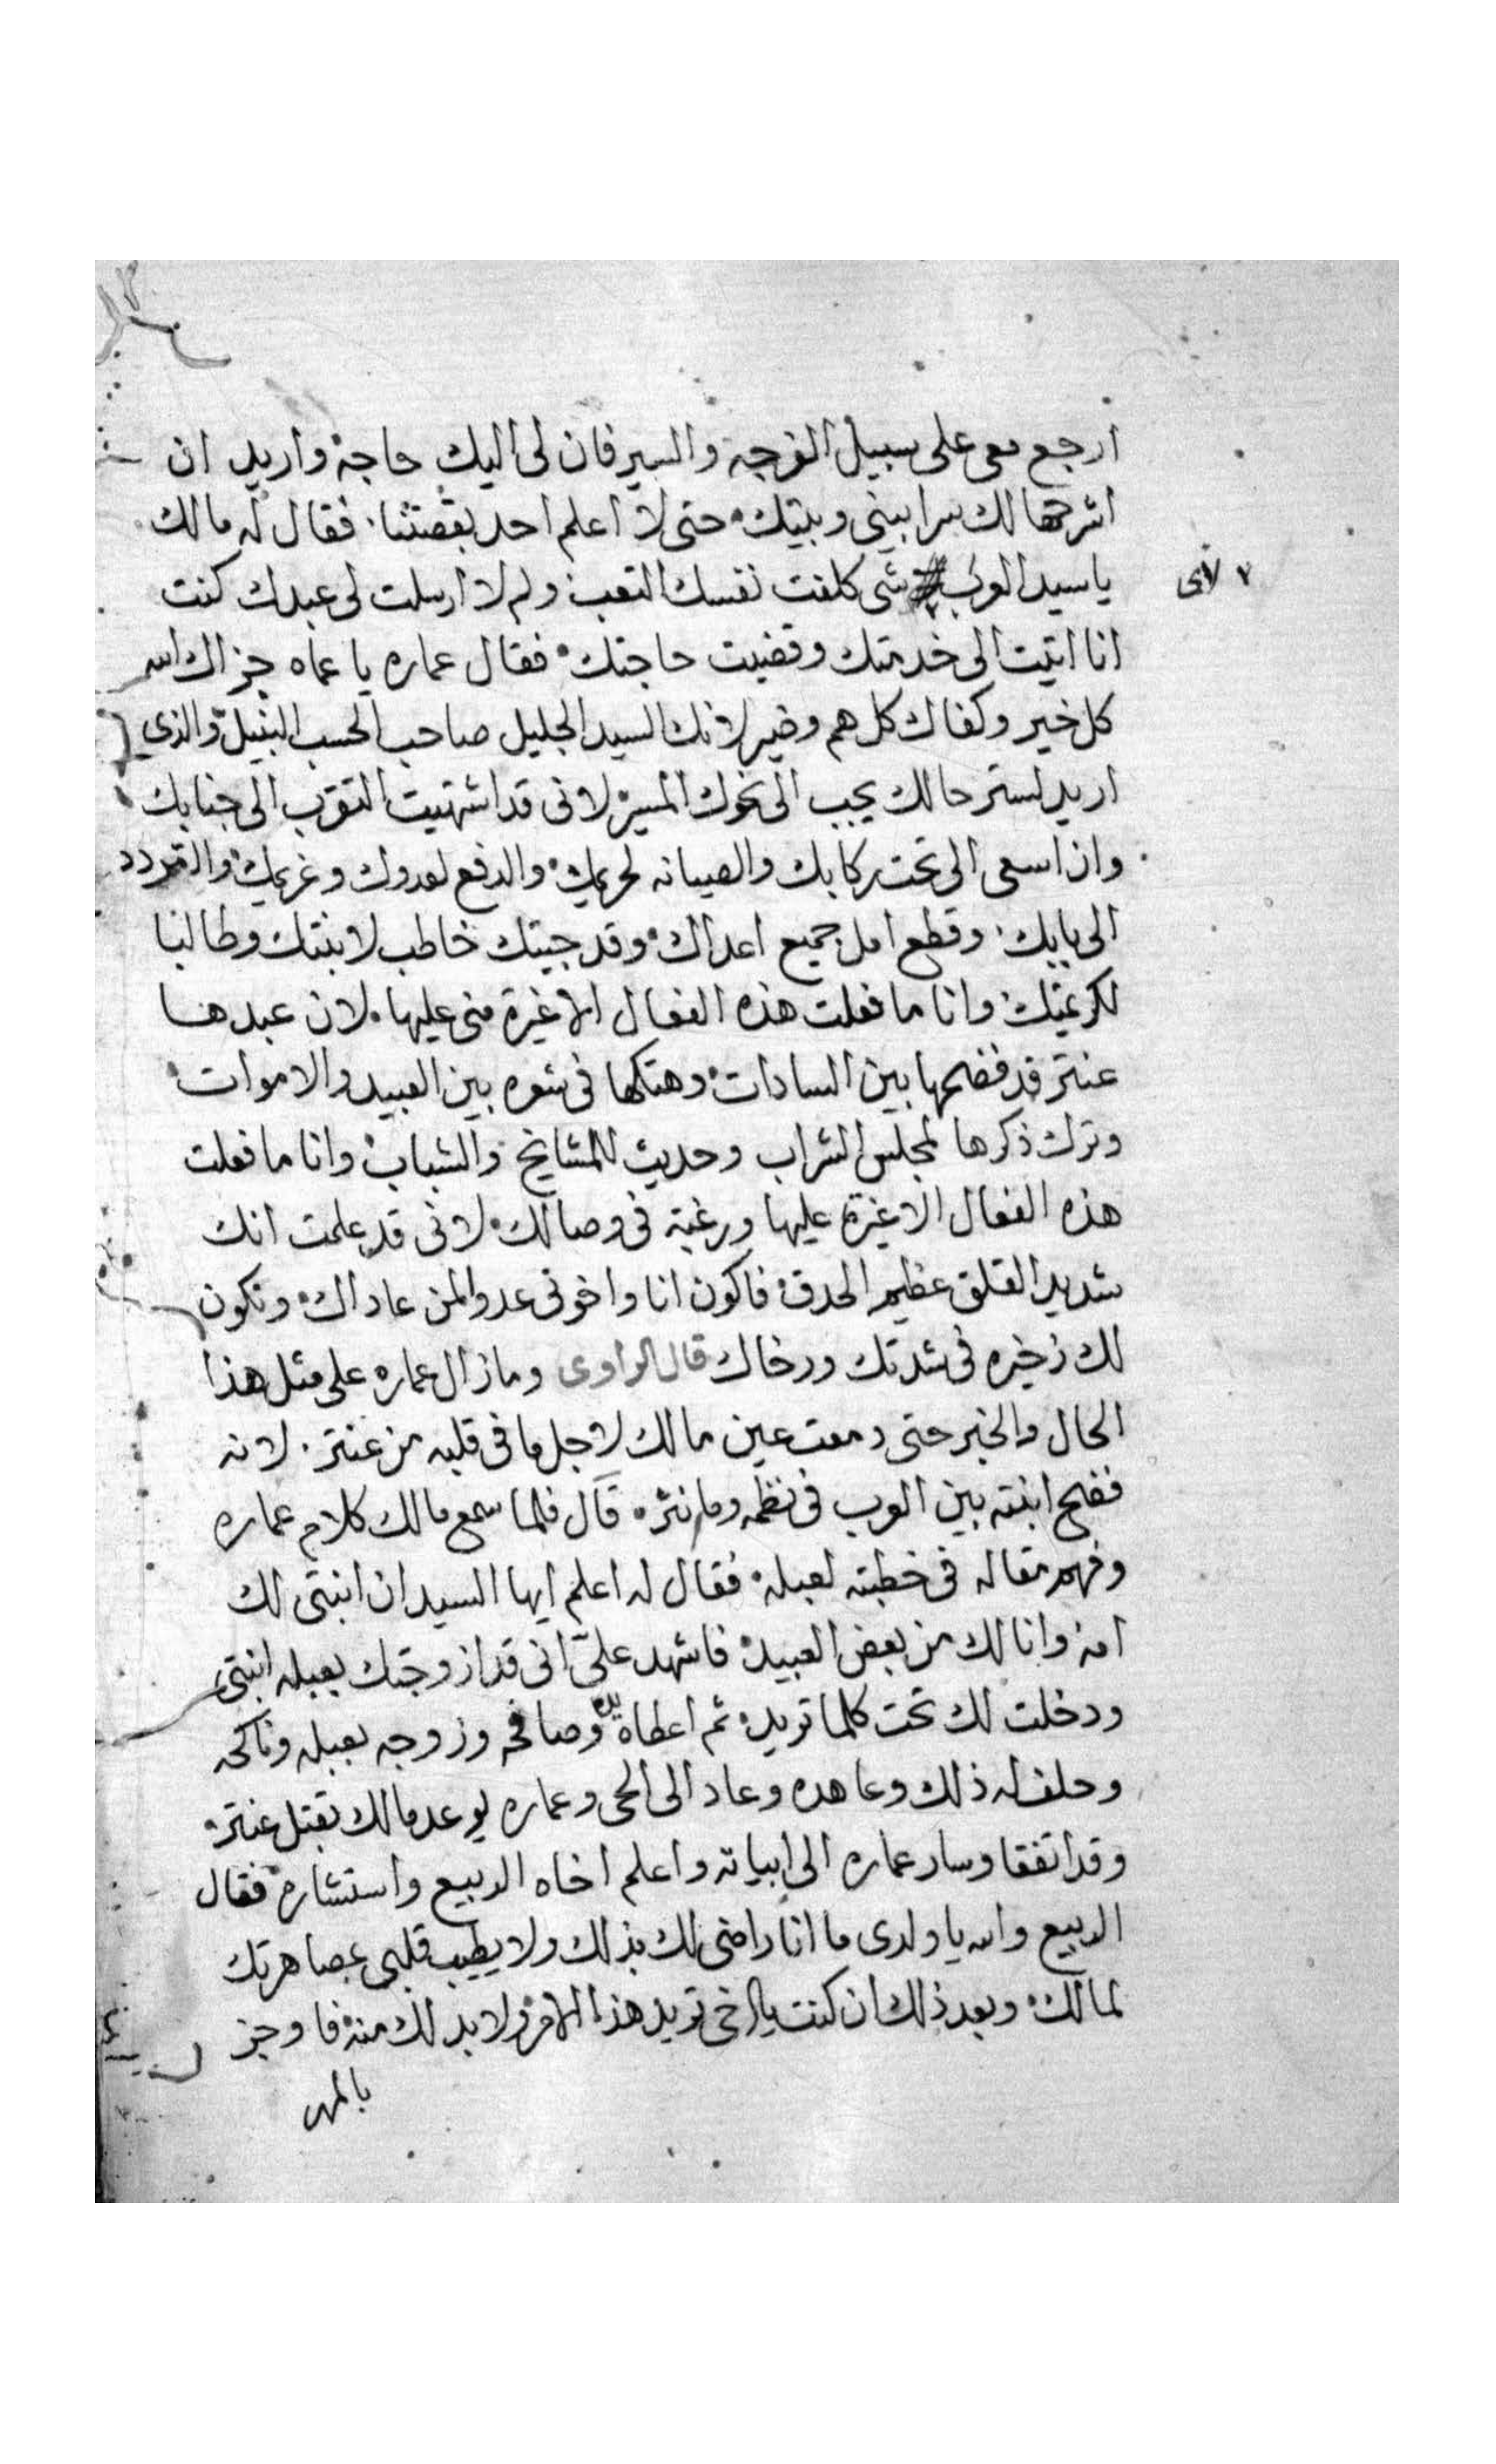 ارجع معى على سبيل الفرجه والسير فان لى اليك حاجة واريد ان
اشرحها لك سرا بينى وبينك حتى لا اعلم احد بقصتنا فقال له مالك
يا سيد العرب شى كلفت نفسك التعب ولم لا ارسلت لى عبدك كنت
لاى
انا اتيت الى خدمتك وقضيت حاجتك فقال عماره يا عماه جزاك الله
كل خير وكفاك كل هم وضير لانك السيد الجليل صاحب الحسب النبيل والذي
اريد لستر حالك يجب الى نحوك المسير لانى قد اشتهيت التقرب الى جنابك
وان اسعى الى تحت ركابك والصيانه لحريمك والدفع لعدوك وغريمك والتردد
الى بابك وقطع امل جميع اعداك وقد جيتك خاطب لابنتك وطالبا
لكريمتك وانا ما فعلت هذه الفعال الا غيرة منى عليها لان عبدها
عنتر قد فضحها بين السادات وهتكها فى شعره بين العبيد والاموات
وترك ذكرها لمجلس الشراب وحديث للمشايخ والشباب وانا ما فعلت
هذه الفعال الا غيرة عليها ورغبة فى وصالك لانى قد علمت انك
شديد القلق عظيم الحدق فاكون انا واخوتى عدوا لمن عاداك ونكون
لك ذخيره فى شدتك ورخاك قال الراوى وما زال عماره على مثل هذا
الحال والخبر حتى دمعت عين مالك لاجل ما فى قلبه من عنتر لانه
فضح ابنته بين العرب فى نظمه وما نثره قال فلما سمع مالك كلام عماره
وفهم مقاله فى خطبته لعبله فقال له اعلم ايها السيد ان ابنتى لك
امة وانا لك من بعض العبيد فاشهد علىّ انى قد ازوجتك بعبله ابنتى
ودخلت لك تحت كلما تريد ثم اعطاه يده وصافحه وزوجه بعبله وناكحه
وحلف له ذلك وعاهده وعاد الى الحى وعماره يوعد مالك بقتل عنتر
وقد اتفقا وسار عماره الى ابياته واعلم اخاه الربيع واستشاره فقال
الربيع والله يا ولدى ما انا راضى لك بذلك ولا يطيب قلبى بمصاهرتك
لمالك وبعد ذلك ان كنت يا اخى تريد هذا الامر ولا بد لك منه فاوجز
بالمهر